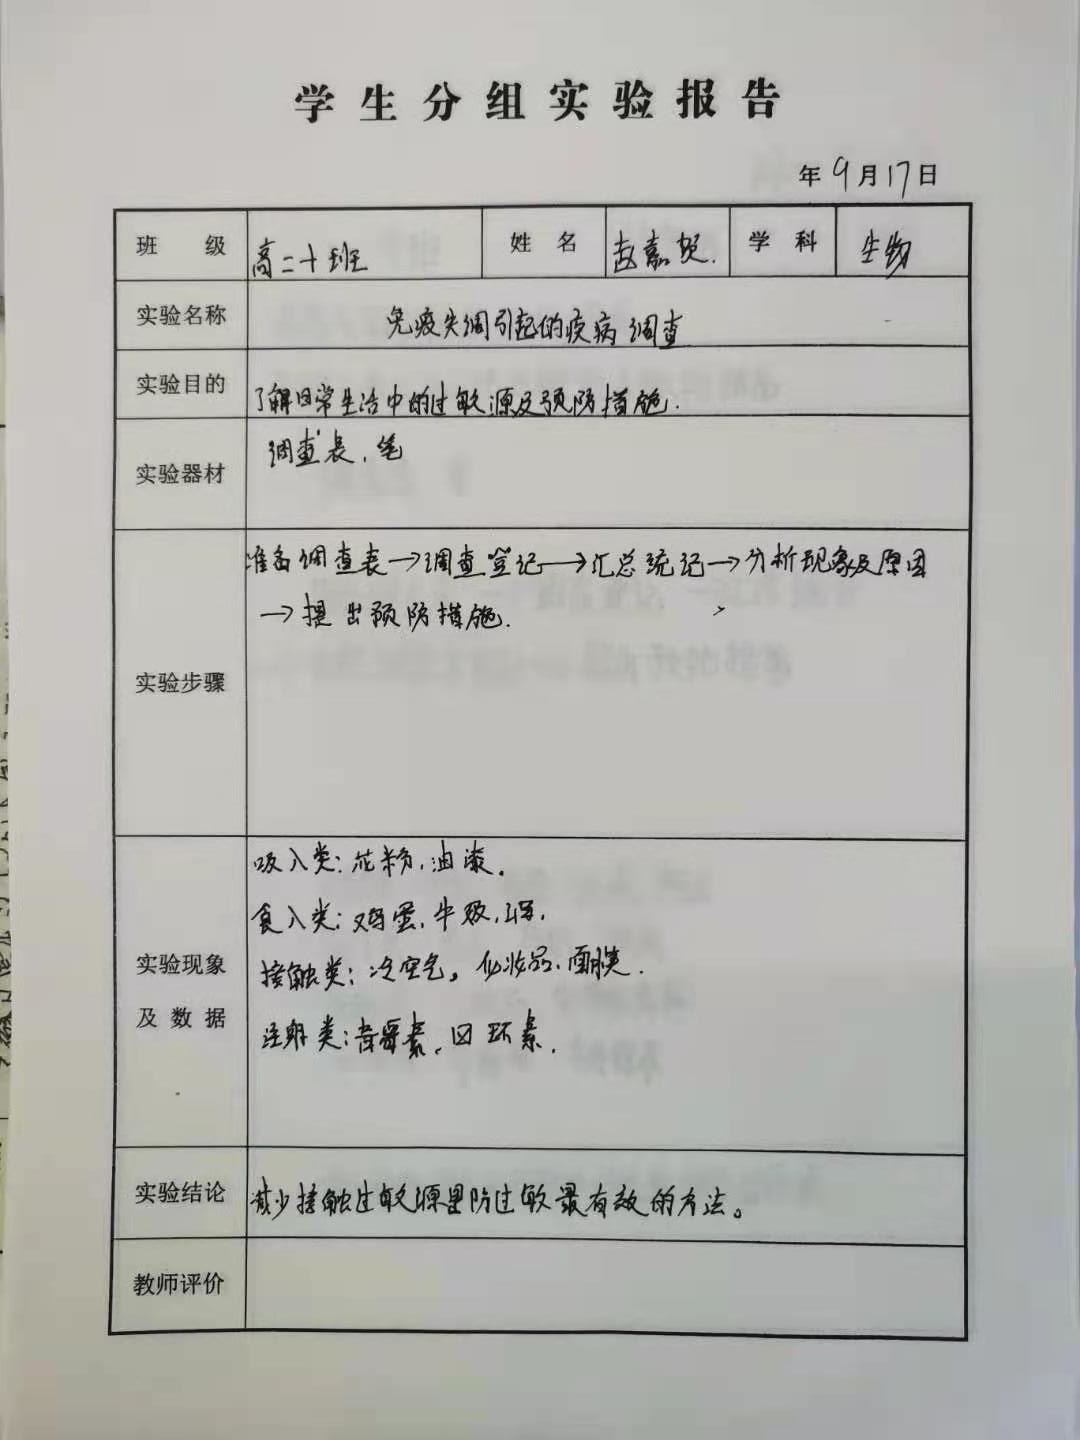 学生分组实验报告
年9月17日
班 级 高二十班 姓 名 赵嘉贺. 学 科 生物
实验名称 免疫失调引起的疾病调查
实验目的 了解日常生活中的过敏源及预防措施.
实验器材 调查表、笔
准备调查表→调查登记→汇总统记→分析现象及原因
→提出预防措施.
实验步骤
吸入类:花粉,油漆.
食入类:鸡蛋,牛奶,
实验现象 接触类:冷空气。化妆品、面膜.
及数据 注射类:青霉素、四环素.
实验结论 减少接触过敏源是防过敏最有效的方法。
教师评价